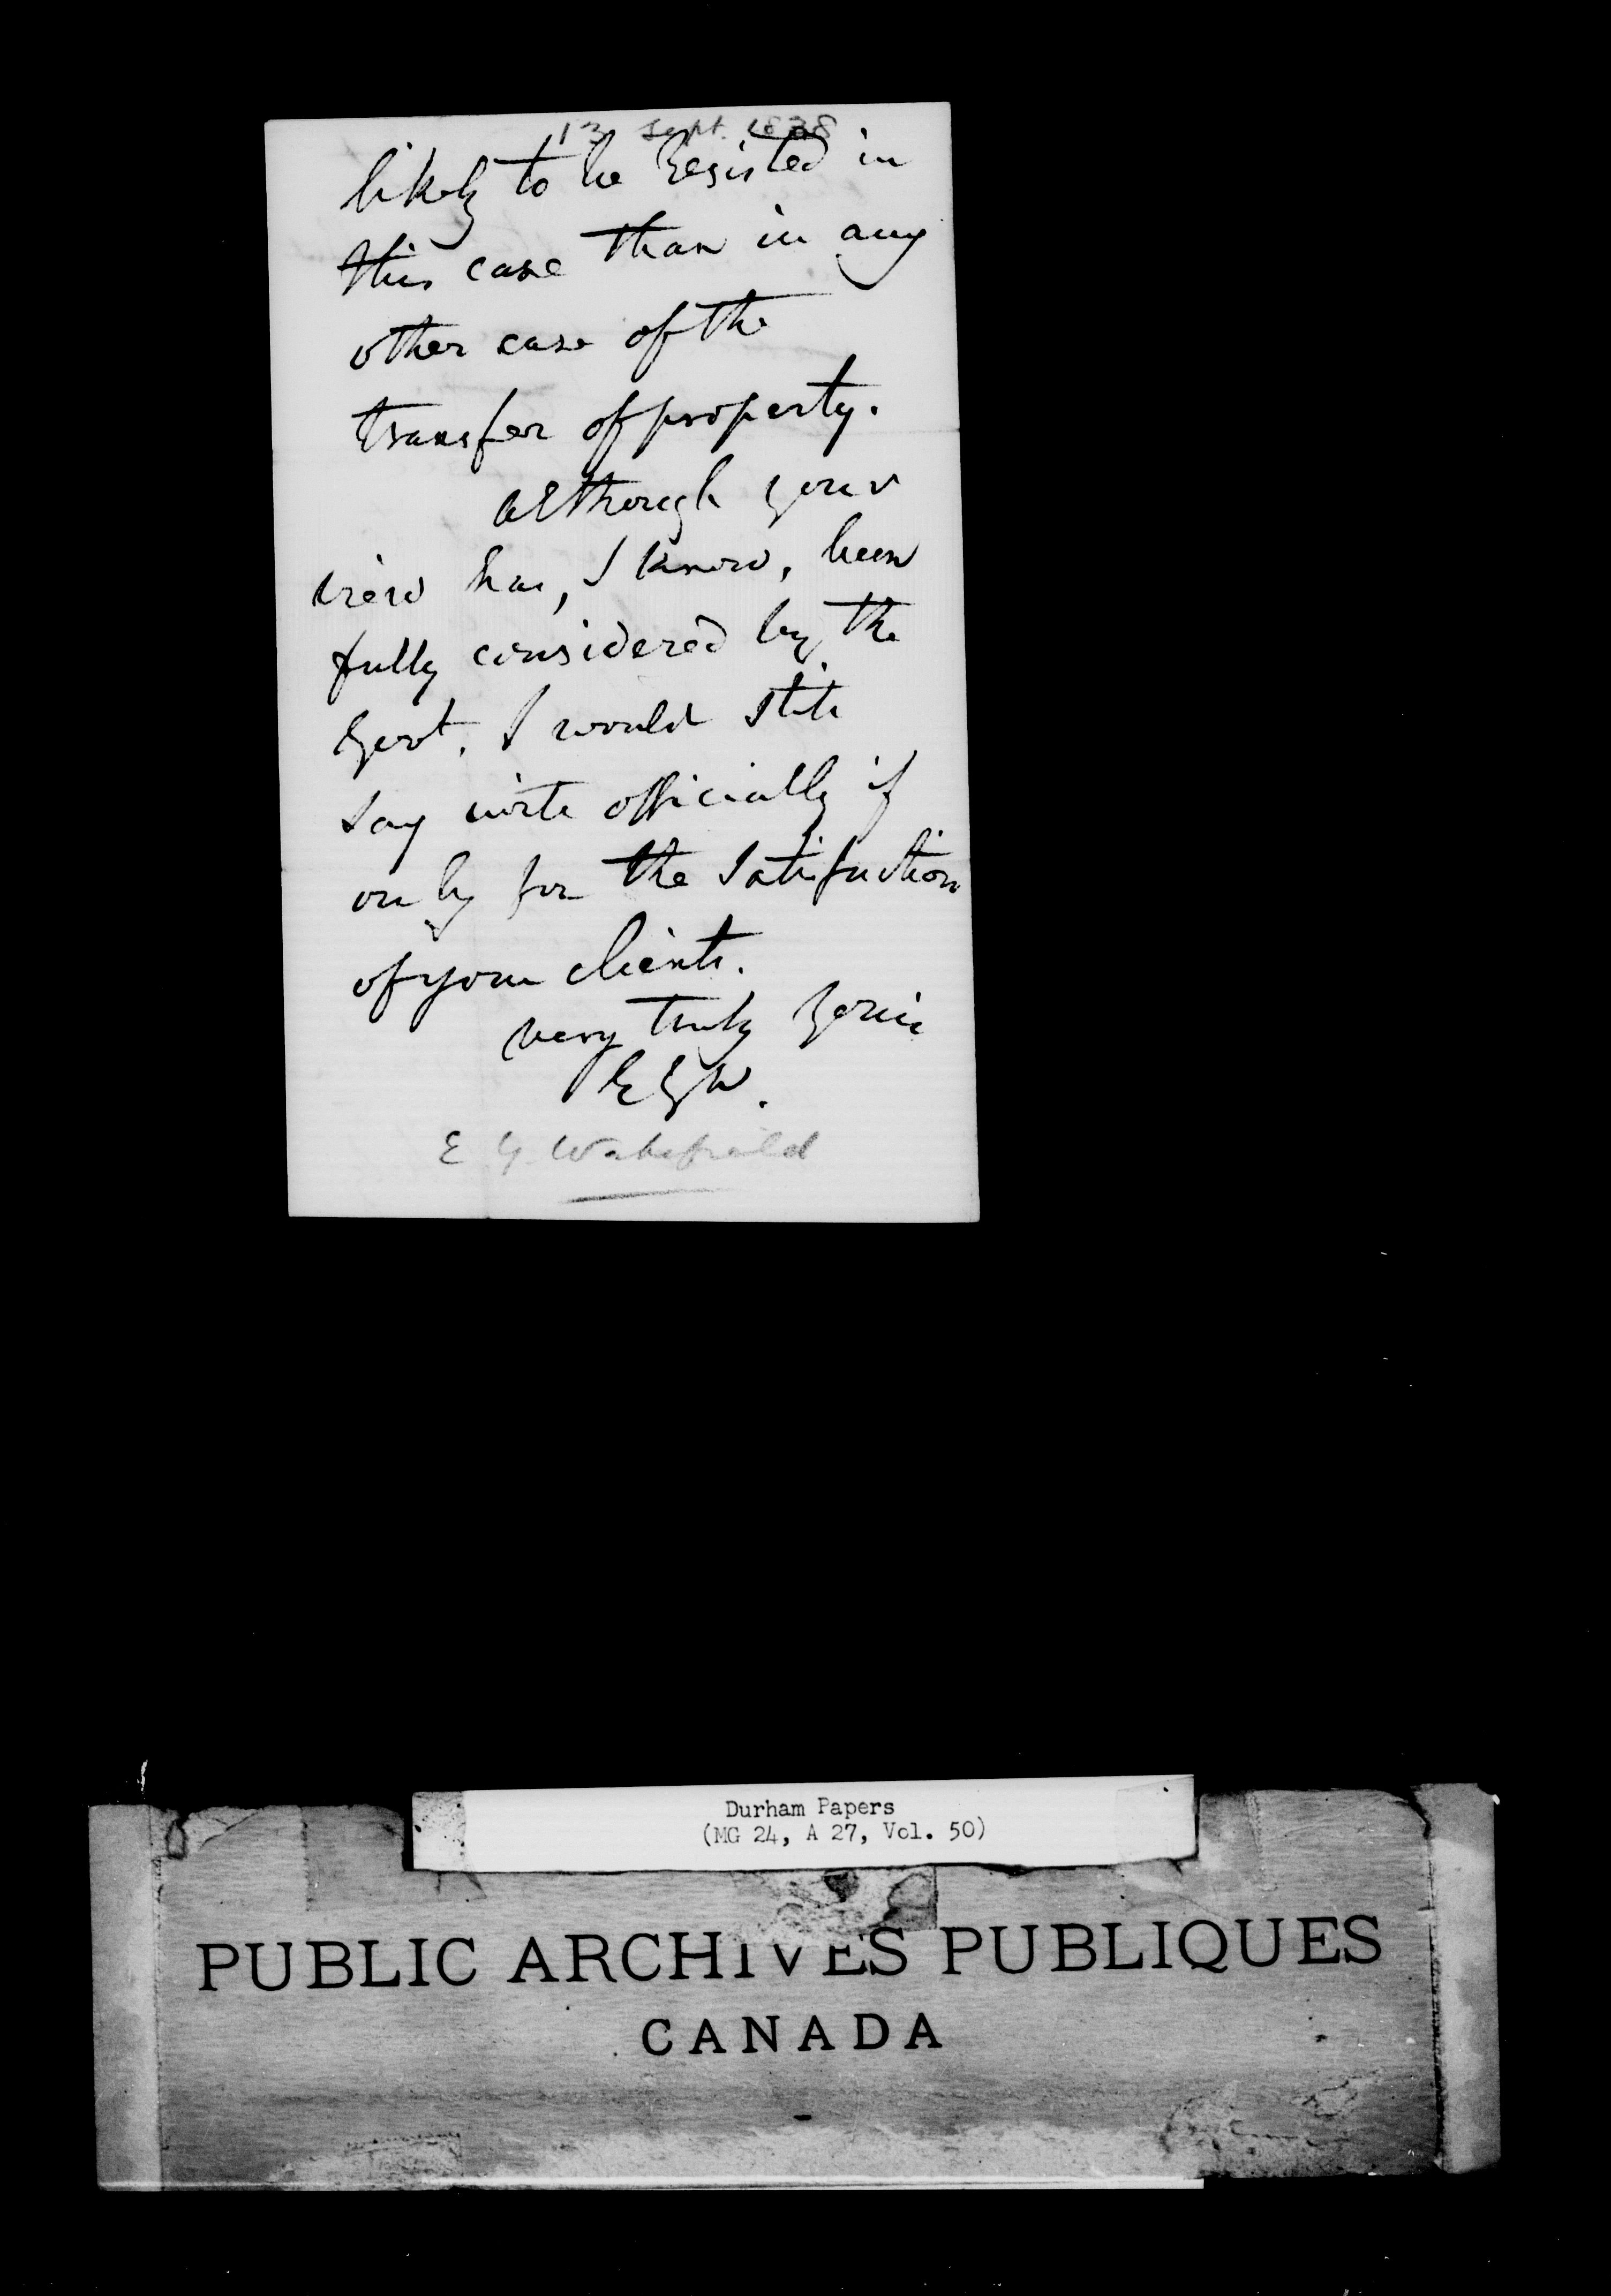 13 Sept. 1838
likely to be resisted in
this case than in any
other case of the
transfer of property.
Although your
view has, I know, been
fully considered by the
Govt. I would still
say write officially if
only for the satisfaction
of your clients.
very truly yours
EGW.
E G Wakefield
Durham Papers
(MG 24, A 27, Vol. 50)
PUBLIC ARCHIVES PUBLIQUES
CANADA